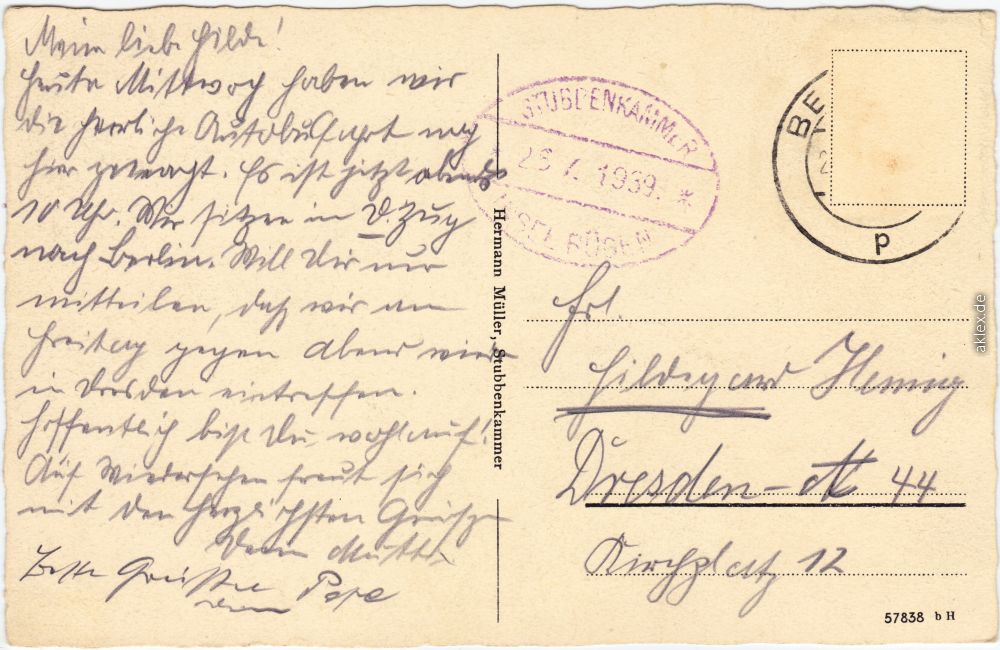 Meine liebe Hilde!
Heute Mittwoch haben wir
die herrliche Autobusfahrt nach
hier gemacht. Es ist jetzt abends
10 Uhr. Wir sitzen im D.Zug
nach Berlin. Will Dir nur
mitteilen, daß wir am
Freitag gegen Abend wieder
in Dresden eintreffen.
Hoffentlich bist Du wohlauf!
Auf Wiedersehen freut sich
mit den herzlichsten Grüßen
Deine Mutti.
Beste Grüße
dein Papa
STUBBENKAMMER
* 26 7. 1939. *
INSEL RÜGEN
BE
p
Hermann Müller, Stubbenkammer
Frl.
Hildegard
Dresden-A 44
Kirchplatz 12
57838 b H
aklex.de